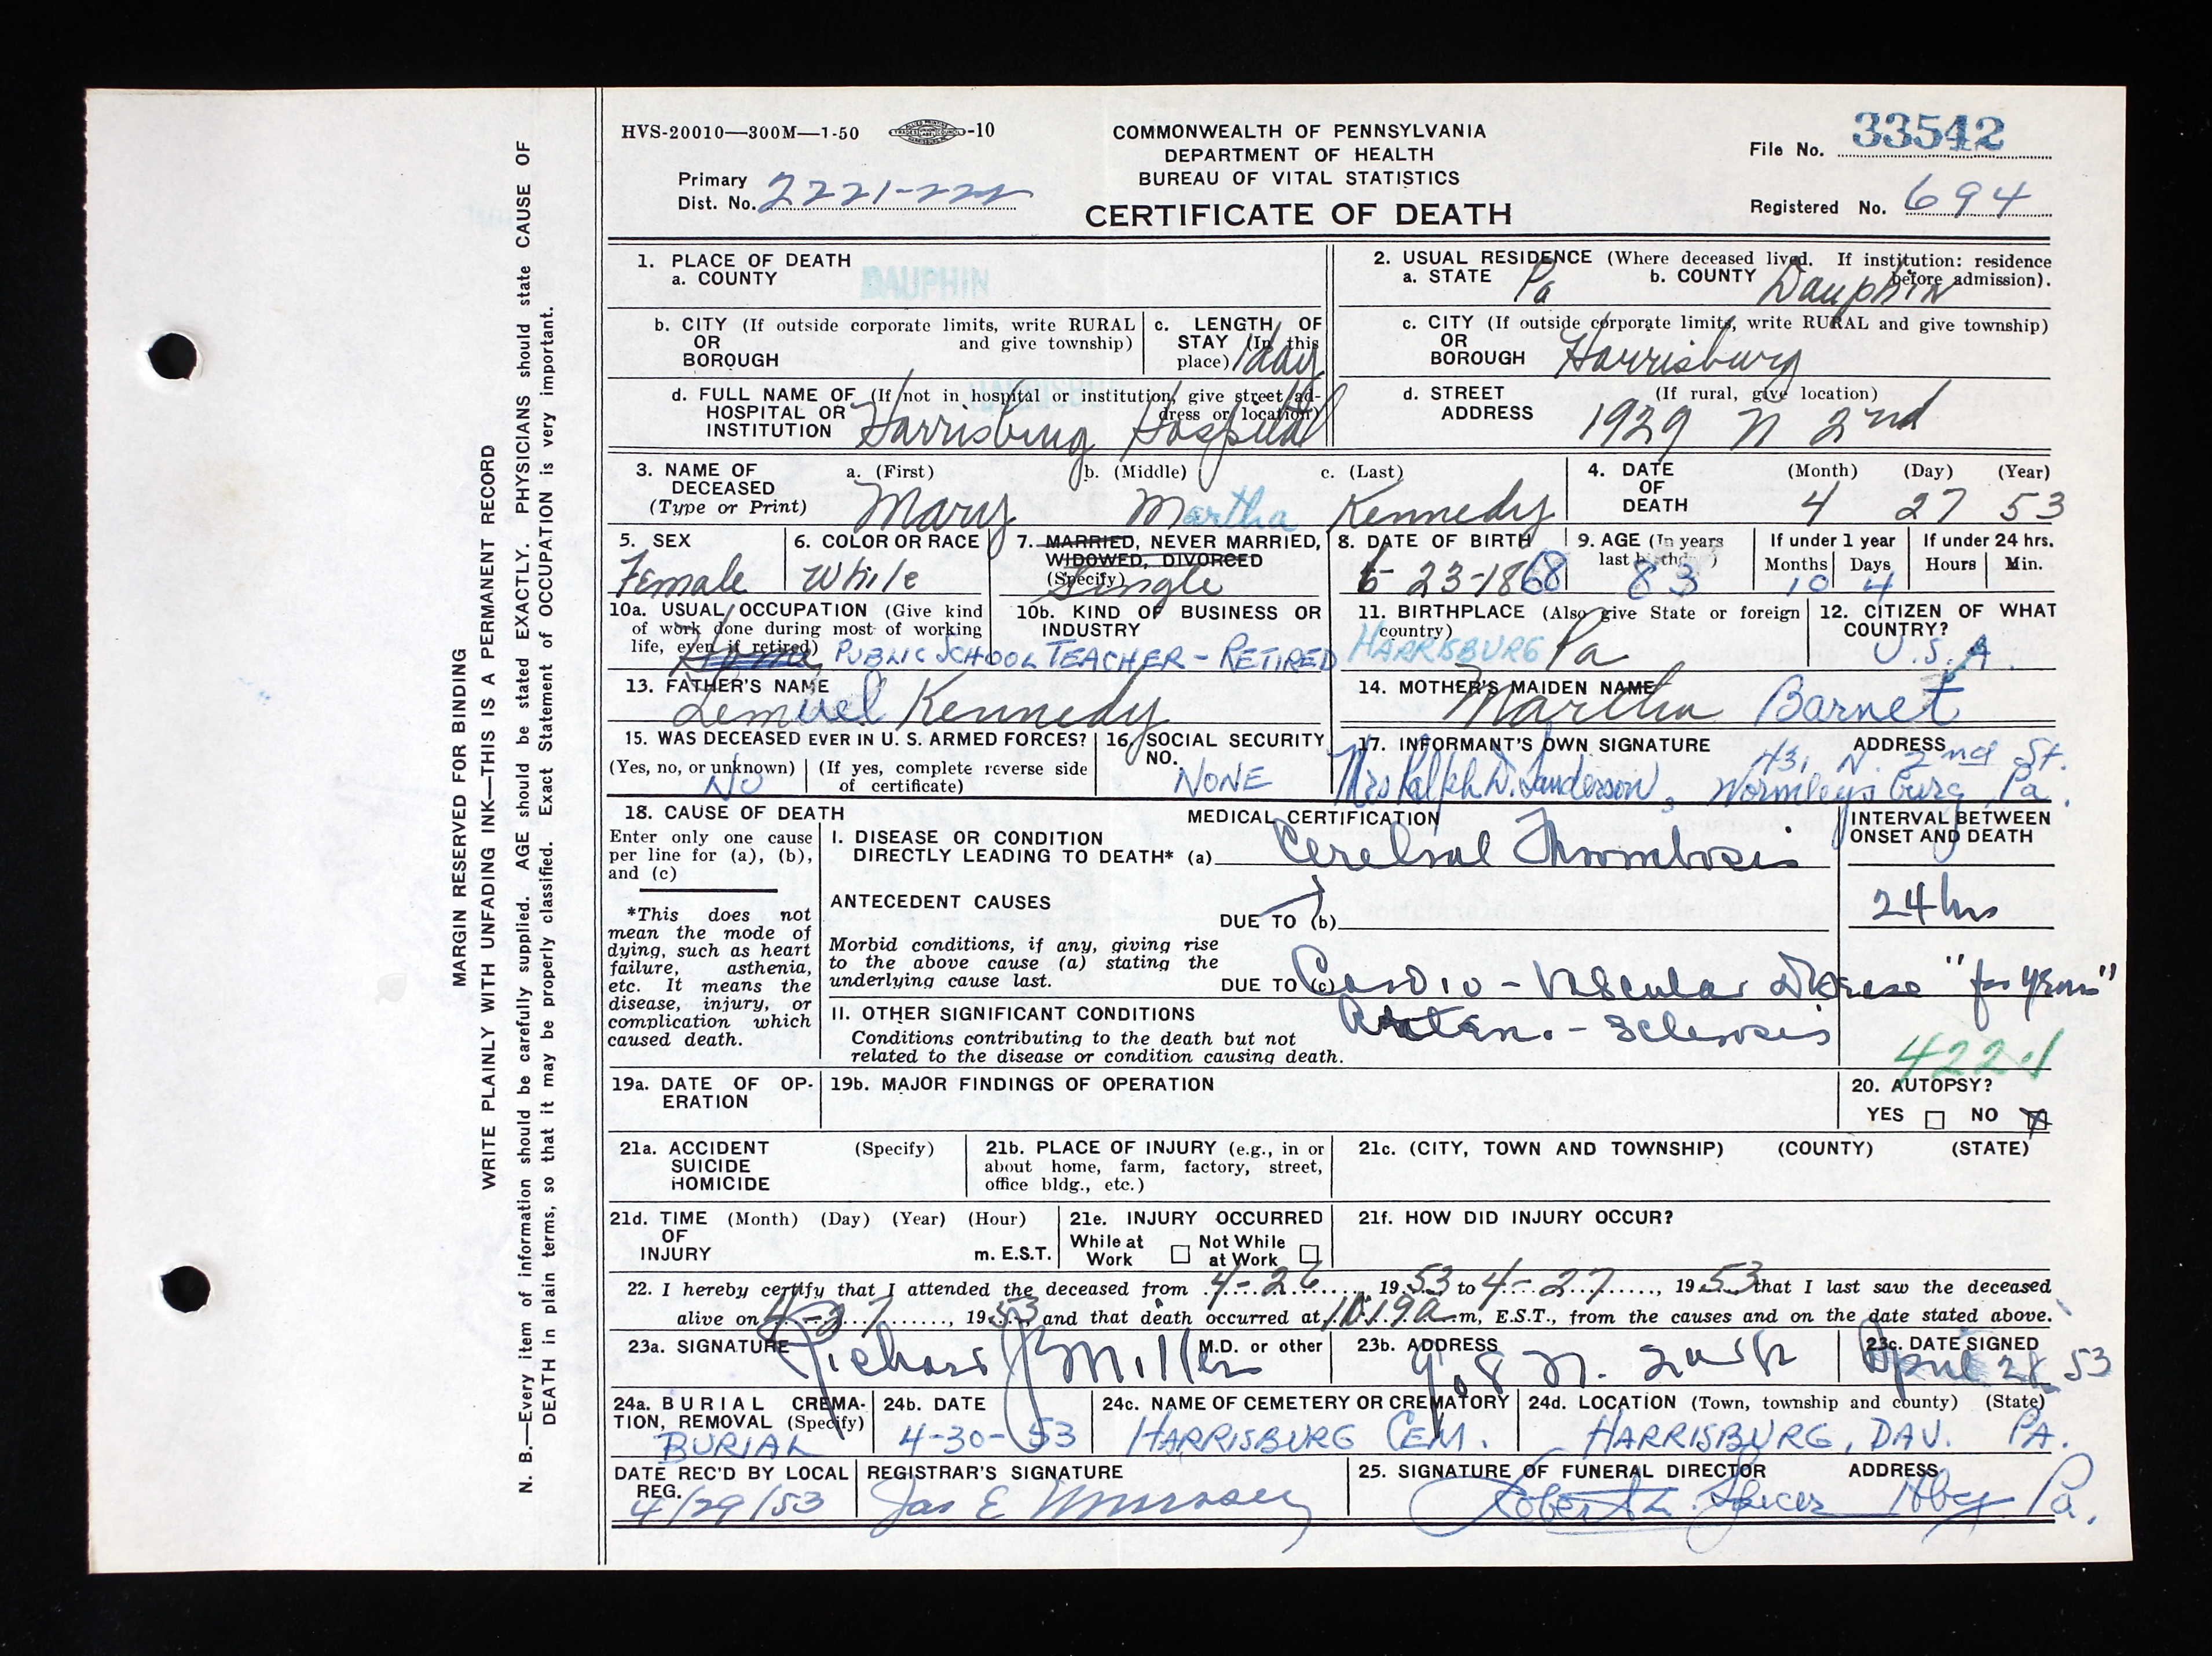 HVS-20010—300M—1-50 -10
COMMONWEALTH OF PENNSYLVANIA
DEPARTMENT OF HEALTH
BUREAU OF VITAL STATISTICS
CERTIFICATE OF DEATH
File No. 33542
Primary
Dist. No. 2221-222
Registered No. 694
MARGIN RESERVED FOR BINDING
WRITE PLAINLY WITH UNFADING INK—THIS IS A PERMANENT RECORD
N. B.—Every item of information should be carefully supplied. AGE should be stated EXACTLY. PHYSICIANS should state CAUSE OF
DEATH in plain terms, so that it may be properly classified. Exact Statement of OCCUPATION is very important.
1. PLACE OF DEATH
a. COUNTY DAUPHIN
2. USUAL RESIDENCE (Where deceased lived. If institution: residence
before admission).
a. STATE Pa b. COUNTY Dauphin
b. CITY (If outside corporate limits, write RURAL
OR and give township)
BOROUGH
HARRISBU
c. LENGTH OF
STAY (In this
place) 1 day
c. CITY (If outside corporate limits, write RURAL and give township)
OR
BOROUGH Harrisburg
d. FULL NAME OF (If not in hospital or institution, give street ad-
HOSPITAL OR dress or location)
INSTITUTION Harrisburg Hospital
d. STREET (If rural, give location)
ADDRESS 1929 N 2nd
3. NAME OF a. (First) b. (Middle) c. (Last)
DECEASED
(Type or Print) Mary Martha Kennedy
4. DATE (Month) (Day) (Year)
OF
DEATH 4 27 53
5. SEX
Female
6. COLOR OR RACE
White
7. MARRIED, NEVER MARRIED,
WIDOWED, DIVORCED
(Specify) Single
8. DATE OF BIRTH
6-23-1868
9. AGE (In years
last birthday)
83
If under 1 year
Months Days
10 4
If under 24 hrs.
Hours Min.
10a. USUAL OCCUPATION (Give kind
of work done during most of working
life, even if retired) PUBLIC SCHOOL TEACHER - RETIRED
10b. KIND OF BUSINESS OR
INDUSTRY
11. BIRTHPLACE (Also give State or foreign
country)
HARRISBURG Pa
12. CITIZEN OF WHAT
COUNTRY?
U.S.A.
13. FATHER'S NAME
Lemuel Kennedy
14. MOTHER'S MAIDEN NAME
Martha Barnet
15. WAS DECEASED EVER IN U. S. ARMED FORCES?
(Yes, no, or unknown) (If yes, complete reverse side
of certificate)
NO
16. SOCIAL SECURITY
NO.
NONE
17. INFORMANT'S OWN SIGNATURE ADDRESS
431 N. 2nd St.
Mrs Ralph D. Sanderson, Wormleysburg Pa.
18. CAUSE OF DEATH
Enter only one cause
per line for (a), (b),
and (c)
*This does not
mean the mode of
dying, such as heart
failure, asthenia,
etc. It means the
disease, injury, or
complication which
caused death.
MEDICAL CERTIFICATION
I. DISEASE OR CONDITION
DIRECTLY LEADING TO DEATH* (a) Cerebral Thrombosis
ANTECEDENT CAUSES
DUE TO (b)
Morbid conditions, if any, giving rise
to the above cause (a) stating the
underlying cause last.
DUE TO (c) Cardio-Vascular Disease "for years"
II. OTHER SIGNIFICANT CONDITIONS
Conditions contributing to the death but not
related to the disease or condition causing death.
Arterio-Sclerosis
INTERVAL BETWEEN
ONSET AND DEATH
24 hrs
422.1
19a. DATE OF OP-
ERATION
19b. MAJOR FINDINGS OF OPERATION
20. AUTOPSY?
YES NO X
21a. ACCIDENT (Specify)
SUICIDE
HOMICIDE
21b. PLACE OF INJURY (e.g., in or
about home, farm, factory, street,
office bldg., etc.)
21c. (CITY, TOWN AND TOWNSHIP) (COUNTY) (STATE)
21d. TIME (Month) (Day) (Year) (Hour)
OF
INJURY m. E.S.T.
21e. INJURY OCCURRED
While at Not While
Work at Work
21f. HOW DID INJURY OCCUR?
22. I hereby certify that I attended the deceased from 4-26, 1953 to 4-27, 1953 that I last saw the deceased
alive on 4-27, 1953 and that death occurred at 10.19 a.m, E.S.T., from the causes and on the date stated above.
23a. SIGNATURE M.D. or other
Richard J Miller
23b. ADDRESS
908 N. 2
23c. DATE SIGNED
April 28 53
24a. BURIAL CREMA-
TION, REMOVAL (Specify)
BURIAL
24b. DATE
4-30-53
24c. NAME OF CEMETERY OR CREMATORY
HARRISBURG CEM.
24d. LOCATION (Town, township and county) (State)
HARRISBURG, DAU. PA.
DATE REC'D BY LOCAL
REG.
4/29/53
REGISTRAR'S SIGNATURE
Jas E
25. SIGNATURE OF FUNERAL DIRECTOR ADDRESS
Robert L. Spicer Hbg Pa.